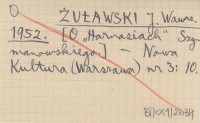 O
ŻUŁAWSKI J. Wawrz.
1952. [O „Harnasiach" Szy-
manowskiego.] — Nowa
Kultura (Warszawa) nr 3: 10.